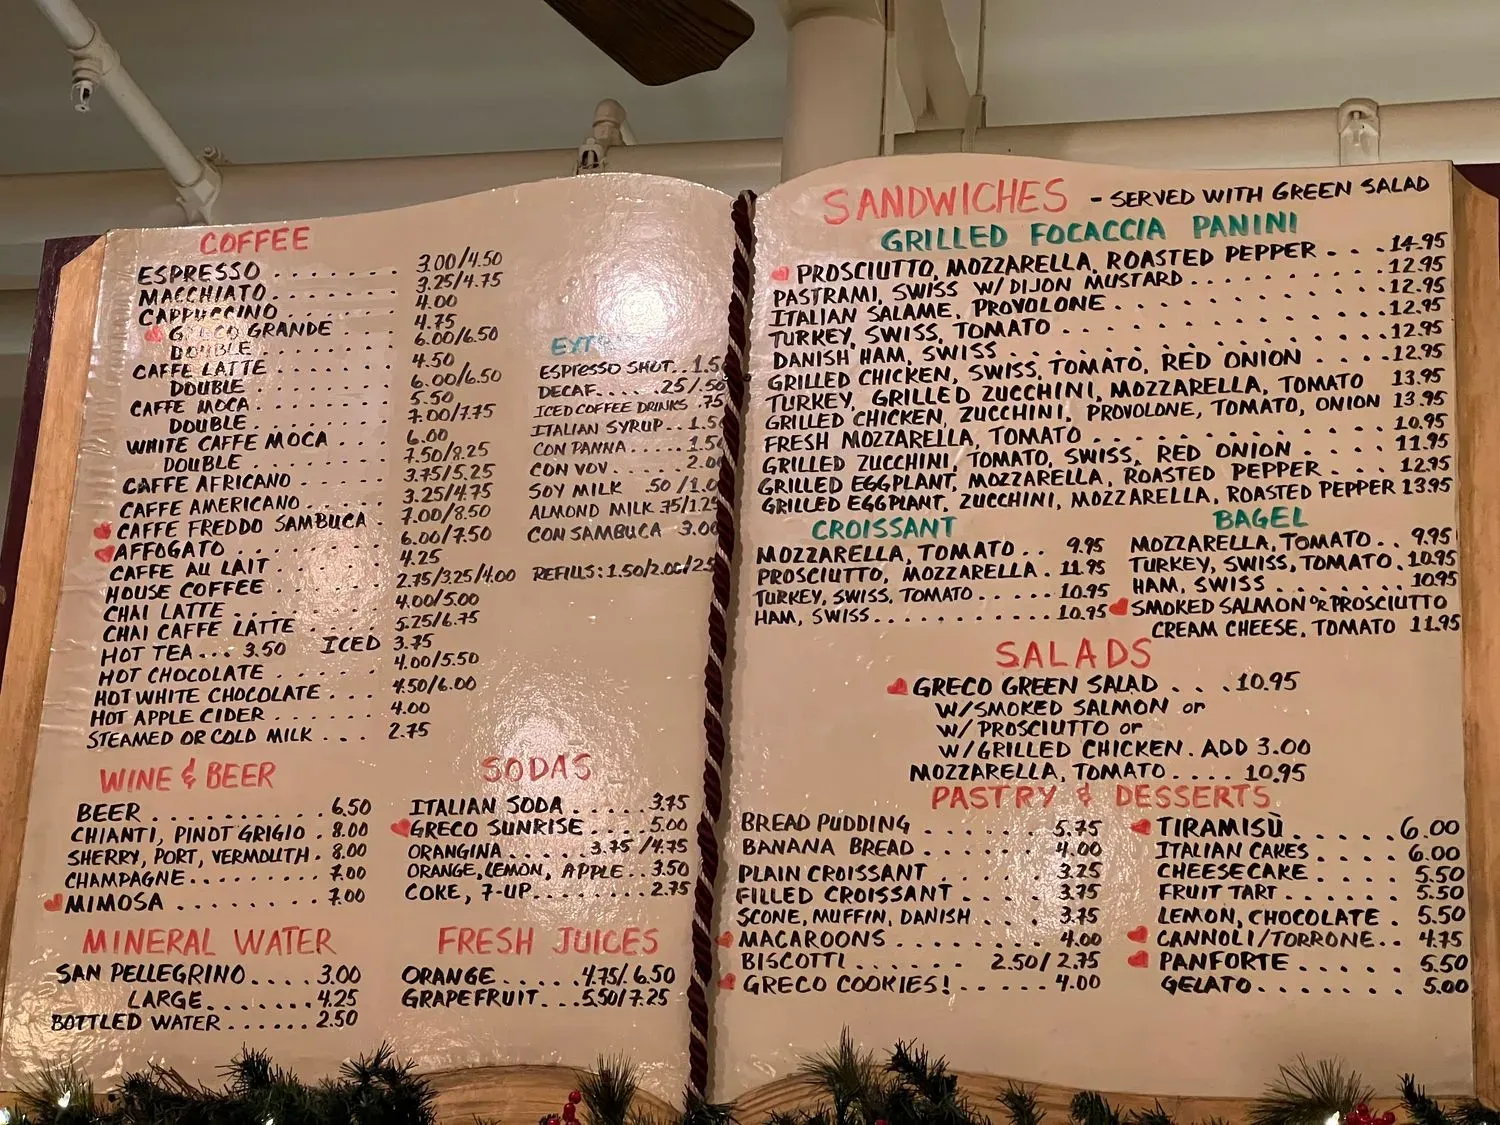 COFFEE
ESPRESSO . . . . . . . 3.00/4.50
MACCHIATO . . . . . . . 3.25/4.75
CAPPUCCINO . . . . . . . 4.00
GRECO GRANDE . . . 4.75
DOUBLE . . . . . . . 6.00/6.50
CAFFE LATTE . . . . . . . 4.50
DOUBLE . . . . . . . 6.00/6.50
CAFFE MOCA . . . . . . . 5.50
DOUBLE . . . . . . . 7.00/7.75
WHITE CAFFE MOCA . . . 6.00
DOUBLE . . . . . . . 7.50/8.25
CAFFE AFRICANO . . . . . 3.75/5.25
CAFFE AMERICANO . . . . . 3.25/4.75
CAFFE FREDDO SAMBUCA . 7.00/8.50
AFFOGATO . . . . . . . 6.00/7.50
CAFFE AU LAIT . . . . . 4.25
HOUSE COFFEE . . . . . 2.75/3.25/4.00
CHAI LATTE . . . . . . . 4.00/5.00
CHAI CAFFE LATTE . . . . 5.25/6.75
HOT TEA . . . 3.50 ICED 3.75
HOT CHOCOLATE . . . . . 4.00/5.50
HOT WHITE CHOCOLATE . . . 4.50/6.00
HOT APPLE CIDER . . . . . 4.00
STEAMED OR COLD MILK . . . 2.75
ESPRESSO SHOT . . 1.50
DECAF . . . . .25/.50
ICED COFFEE DRINKS .75
ITALIAN SYRUP . . 1.50
CON PANNA . . . . . 1.50
CON VOV . . . . . 2.00
SOY MILK .50/1.0
ALMOND MILK .75/1.25
CON SAMBUCA 3.00
REFILLS: 1.50/2.00/2.5
WINE & BEER
BEER . . . . . . . . . . 6.50
CHIANTI, PINOT GRIGIO . 8.00
SHERRY, PORT, VERMOUTH . 8.00
CHAMPAGNE . . . . . . . . 7.00
MIMOSA . . . . . . . . 7.00
SODAS
ITALIAN SODA . . . . . 3.75
GRECO SUNRISE . . . . 5.00
ORANGINA . . . . . 3.75/4.75
ORANGE, LEMON, APPLE . . 3.50
COKE, 7-UP . . . . . . . 2.75
MINERAL WATER
SAN PELLEGRINO . . . . 3.00
LARGE . . . . . . . 4.25
BOTTLED WATER . . . . . . 2.50
FRESH JUICES
ORANGE . . . . . 4.75/6.50
GRAPEFRUIT . . . 5.50/7.25
SANDWICHES - SERVED WITH GREEN SALAD
GRILLED FOCACCIA PANINI
PROSCIUTTO, MOZZARELLA, ROASTED PEPPER . . . 14.95
PASTRAMI, SWISS W/ DIJON MUSTARD . . . . . . . 12.95
ITALIAN SALAME, PROVOLONE . . . . . . . . . 12.95
TURKEY, SWISS, TOMATO . . . . . . . . . . . 12.95
DANISH HAM, SWISS . . . . . . . . . . . . . 12.95
GRILLED CHICKEN, SWISS, TOMATO, RED ONION . . . . 12.95
TURKEY, GRILLED ZUCCHINI, MOZZARELLA, TOMATO 13.95
GRILLED CHICKEN, ZUCCHINI, PROVOLONE, TOMATO, ONION 13.95
FRESH MOZZARELLA, TOMATO . . . . . . . . . . 10.95
GRILLED ZUCCHINI, TOMATO, SWISS, RED ONION . . . . 11.95
GRILLED EGGPLANT, MOZZARELLA, ROASTED PEPPER . . . 12.95
GRILLED EGGPLANT, ZUCCHINI, MOZZARELLA, ROASTED PEPPER 13.95
CROISSANT
MOZZARELLA, TOMATO . . 9.95
PROSCIUTTO, MOZZARELLA . 11.95
TURKEY, SWISS, TOMATO . . . . . 10.95
HAM, SWISS . . . . . . . . . . . 10.95
BAGEL
MOZZARELLA, TOMATO . . 9.95
TURKEY, SWISS, TOMATO . 10.95
HAM, SWISS . . . . . . . 10.95
SMOKED SALMON OR PROSCIUTTO
CREAM CHEESE, TOMATO 11.95
SALADS
GRECO GREEN SALAD . . . 10.95
W/SMOKED SALMON or
W/PROSCIUTTO or
W/GRILLED CHICKEN . ADD 3.00
MOZZARELLA, TOMATO . . . . 10.95
PASTRY & DESSERTS
BREAD PUDDING . . . . . . 5.75
BANANA BREAD . . . . . . 4.00
PLAIN CROISSANT . . . . . 3.25
FILLED CROISSANT . . . . 3.75
SCONE, MUFFIN, DANISH . . . 3.75
MACAROONS . . . . . . . . 4.00
BISCOTTI . . . . . . 2.50/2.75
GRECO COOKIES! . . . . . 4.00
TIRAMISÙ . . . . . . 6.00
ITALIAN CAKES . . . . 6.00
CHEESECAKE . . . . 5.50
FRUIT TART . . . . . 5.50
LEMON, CHOCOLATE . 5.50
CANNOLI/TORRONE . . 4.75
PANFORTE . . . . . . 5.50
GELATO . . . . . . . 5.00